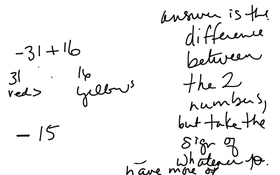 -31+16
31 16
reds yellows
-15
answer is the
difference
between
the 2
numbers,
but take the
sign of
whatever
have more of